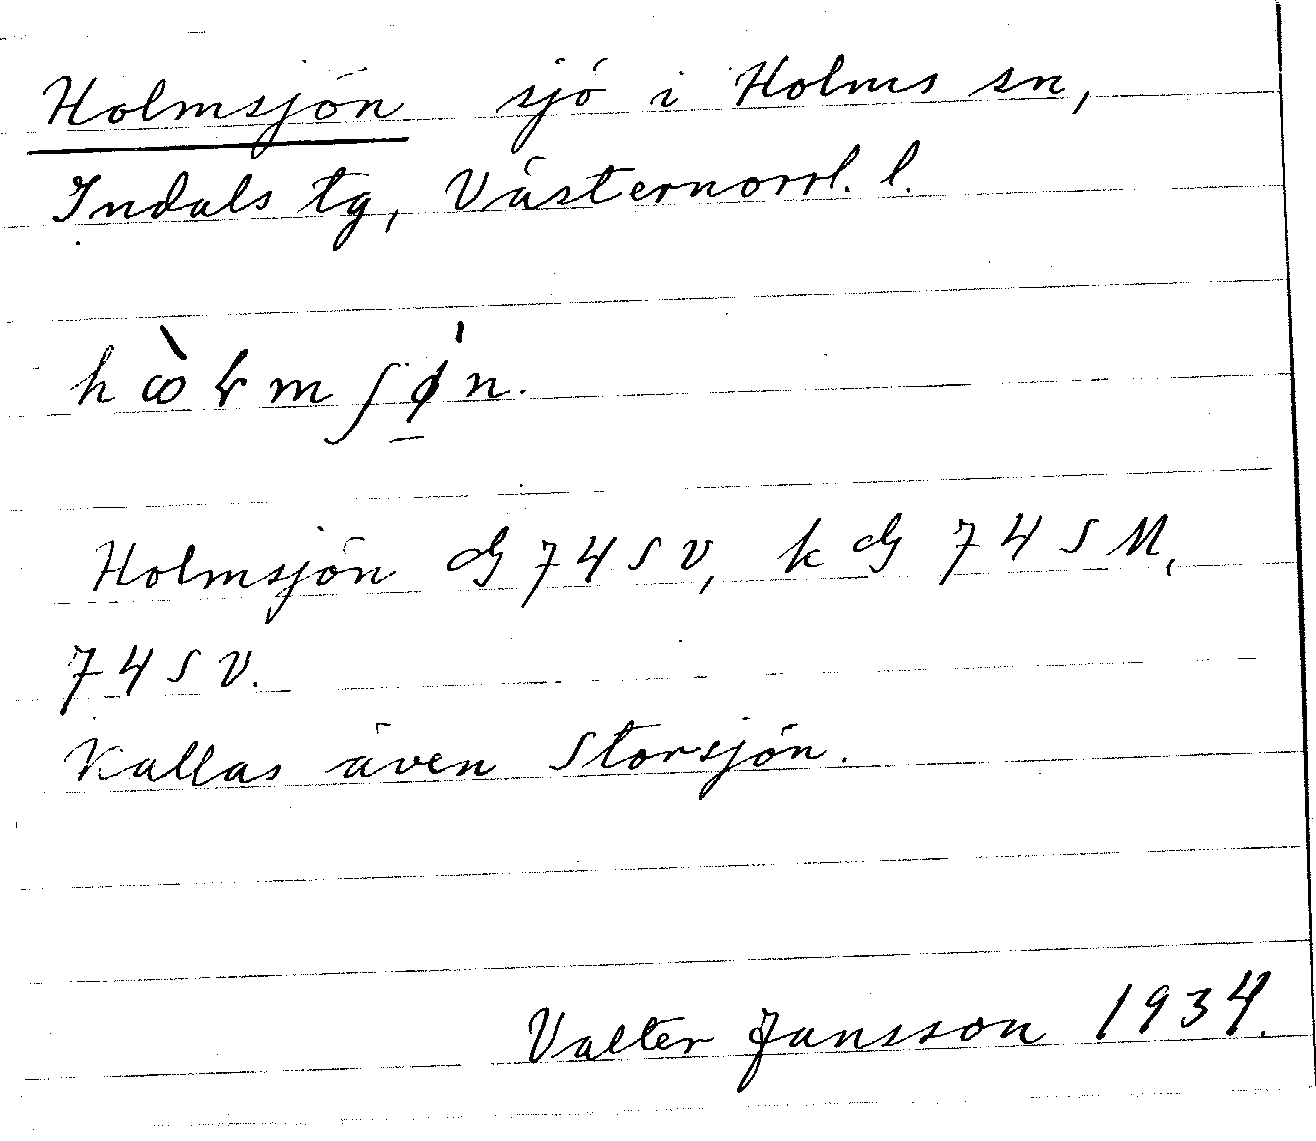 Holmsjön sjö i Holms sn,
Indals tg, Västernorrl. l.
hò̤ɽmʃǿ̠n.
Holmsjön G 74 S V, k G 74 S M,
74 S V.
Kallas även Storsjön.
Valter Jansson 1934.